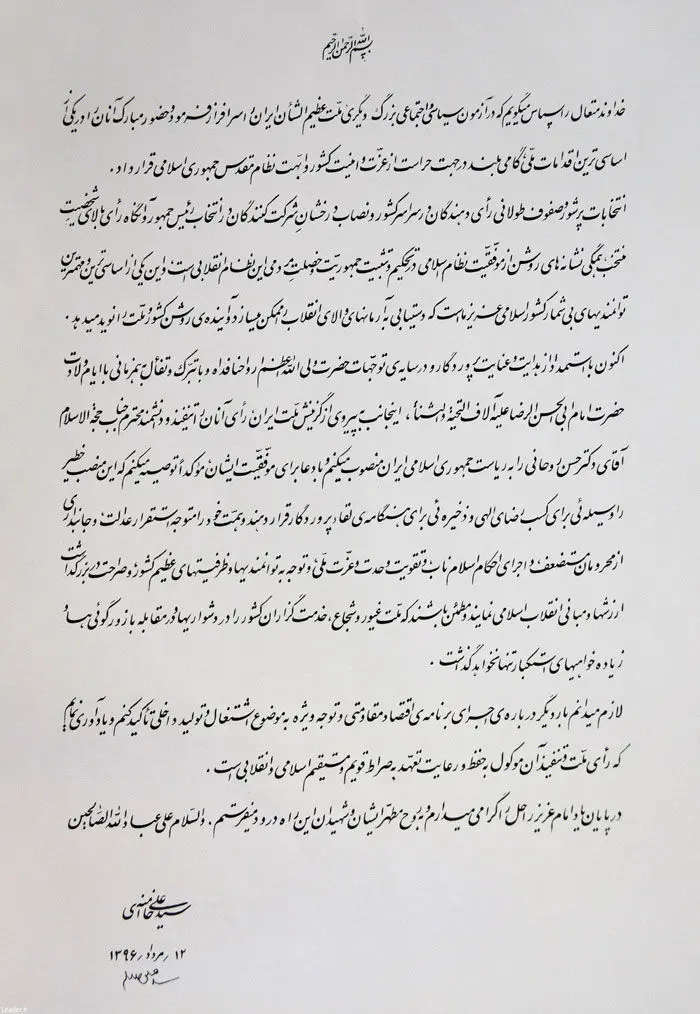 بسم الله الرحمن الرحیم
خداوند متعال را سپاس میگویم که در آزمون سیاسی و اجتماعی بزرگ دیگری ملّت عظیم‌الشّأن ایران را سرافراز فرمود و حضور مبارک آنان را در یکی از
اساسی‌ترین اقدامات ملّی گامی بلند در جهت حراست از عزّت و امنیت کشور و ابّهت نظام مقدّس جمهوری اسلامی قرار داد.
انتخابات پرشور و صفوف طولانی رأی دهندگان در سراسر کشور و نصاب درخشان شرکت‌کنندگان در انتخاب رئیس جمهور و آنگاه رأی بالای شخصیّت
منتخب، همگی نشانه‌های روشن از موفّقیّت نظام اسلامی در تحکیم و تثبیت جمهوریّت و خصلت مردمی این نظام انقلابی است و این یکی از اساسی‌ترین و مهمترین
توانمندیهای بی‌شمار کشور اسلامی عزیز ما است که دستیابی به آرمانهای والای انقلاب را ممکن میسازد و آینده‌ی روشن کشور و ملّت را نوید میدهد.
اکنون با استمداد از هدایت و عنایت پروردگار و در سایه‌ی توجّهات حضرت ولی الله الاعظم ارواحنا فداه و با تبرّک و تفأّل به همزمانی با ایّام ولادت
حضرت امام ابی‌الحسن الرضا علیه آلاف التحیّة و الثناء، اینجانب به پیروی از گزینش ملّت ایران، رأی آنان را تنفیذ و دانشمند محترم جناب حجّة‌الاسلام
آقای دکتر حسن روحانی را به ریاست جمهوری اسلامی ایران منصوب میکنم و با دعا برای موفّقیّت ایشان مؤکّداً توصیه میکنم که این منصب خطیر
را وسیله‌ئی برای کسب رضای الهی و ذخیره‌ئی برای هنگامه‌ی لقاء پروردگار قرار دهند و همّت خود را متوجّه استقرار عدالت و جانبداری
از محرومان و مستضعفان و اجرای احکام اسلام ناب و تقویت وحدت و عزّت ملّی و توجّه به توانمندیها و ظرفیّتهای عظیم کشور و صراحت در بزرگداشت
ارزشها و مبانی انقلاب اسلامی نمایند و مطمئن باشند که ملّت غیور و شجاع، خدمت‌گزاران کشور را در دشواریها و در مقابله با زورگوئی‌ها و
زیاده‌خواهیهای استکبار تنها نخواهد گذاشت.
لازم میدانم بار دیگر درباره‌ی اجرای برنامه‌ی اقتصاد مقاومتی و توجّه ویژه به موضوع اشتغال و تولید داخلی تأکید کنم و یادآوری نمایم
که رأی ملّت و تنفیذ آن موکول به حفظ و رعایت تعهّد به صراط قویم و مستقیم اسلامی و انقلابی است.
در پایان یاد امام عزیز راحل را گرامی میدارم و به روح مطهّر ایشان و شهیدان این راه درود میفرستم. والسّلام علی عباد الله الصّالحین
سیدعلی خامنه‌ای
۱۲ / مرداد / ۱۳۹۶